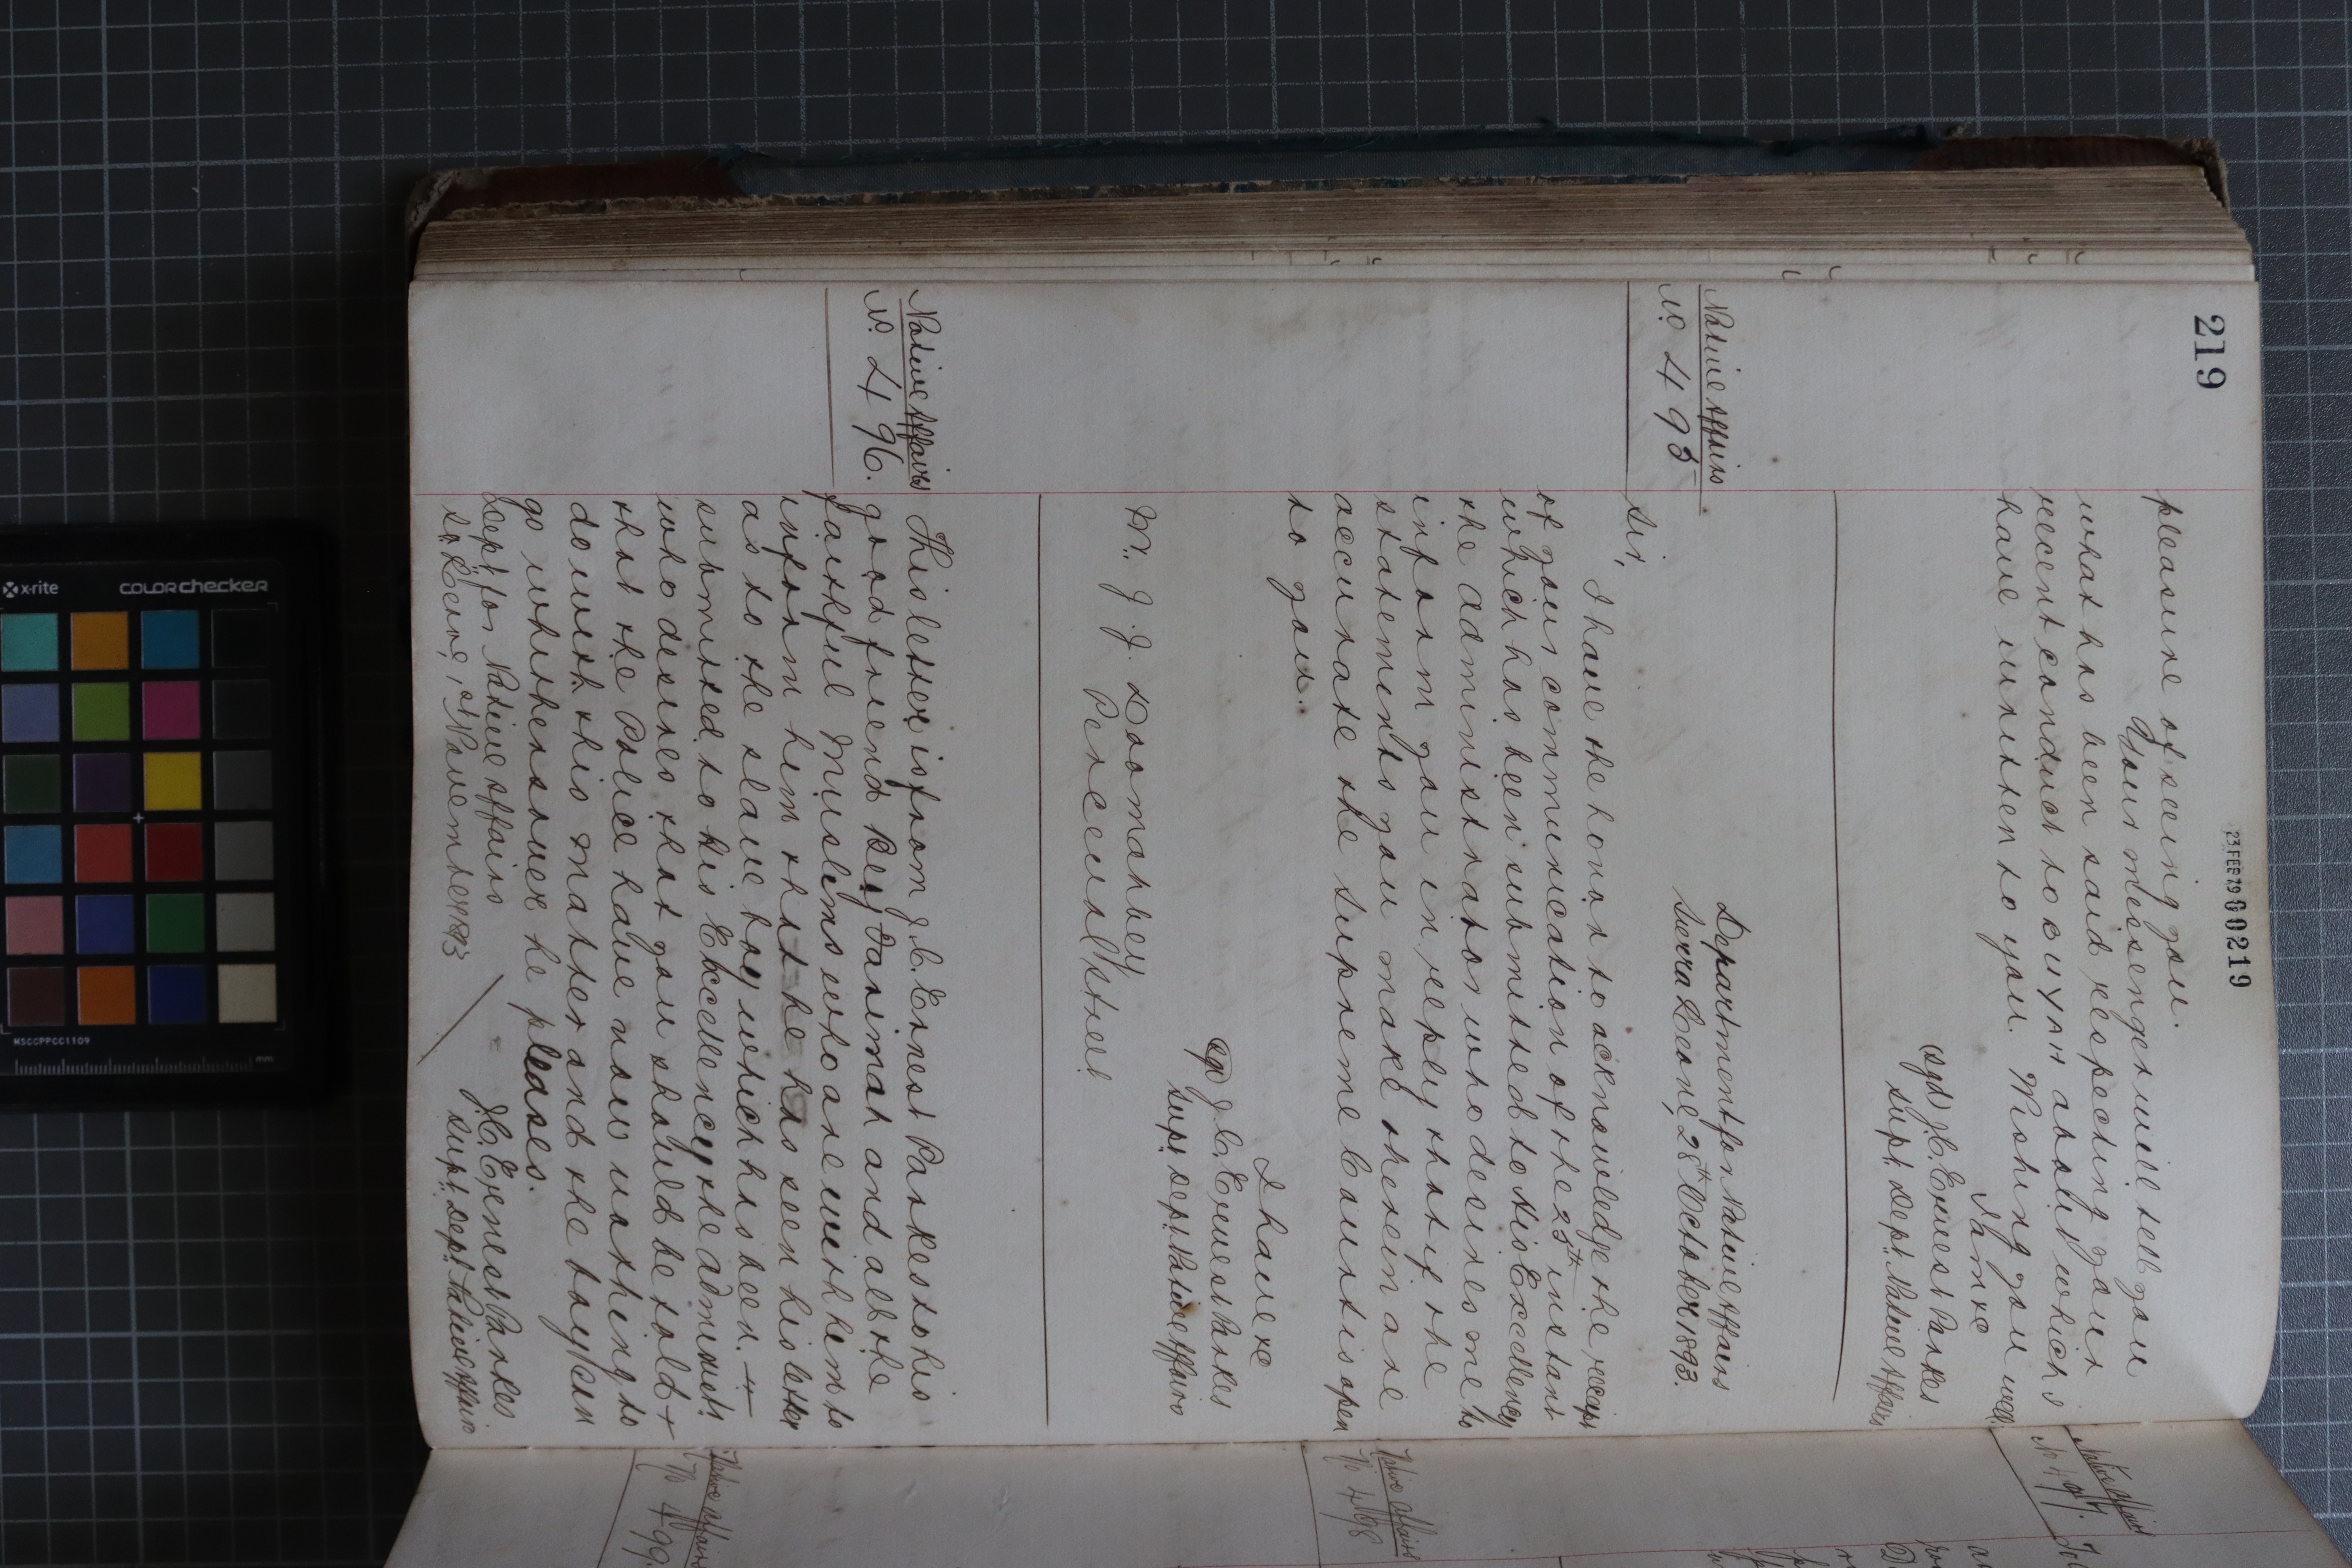 219
23 FEB 79 000219
pleasure of seeing you.
Your messenger will tell you
what has been said respecting your
recent conduct to
about which I
have written to you. Wishing you well
I am &c
sgd J.C. Ernest Parkes
Supt. Dept. Native Affairs
Native Affairs
No. 495
Department for Native Affairs
Sierra Leone, 28th October 1893.
Sir,
I have the honor to acknowledge the receipt
of your communication of the 25th instant
which has been submitted to His Excellency
the administrator who desires me to
inform you in reply that if the
statements you make therein are
accurate the Supreme Court is open
to you.
I have &c
sgd J.C. Ernest Parkes
Supt. Dept. Native Affairs
Mr. J.J. Loomahbey
Percival Street
Native Affairs
No. 496.
This letter is from J.C. Ernest Parkes to his
good friend Bey Farimah and all the
faithful Muslims who are with him to
inform him that he has seen his letter
as to the slave boy which has been
submitted to his Excellency the administr
who desires that you should be told
that the Police have now nothing to
do with this matter and the boy can
go whithersoever he pleases.
J.C. Ernest Parkes
Supt. Dept. Native Affairs
Dept. for Native Affairs
Sa. Leone, 1st November 1893
Native Affairs
No 497.
Native Affairs
No 498
Native Affairs
No 499.
x-rite
colorchecker
MSCCPPCC1109
mm